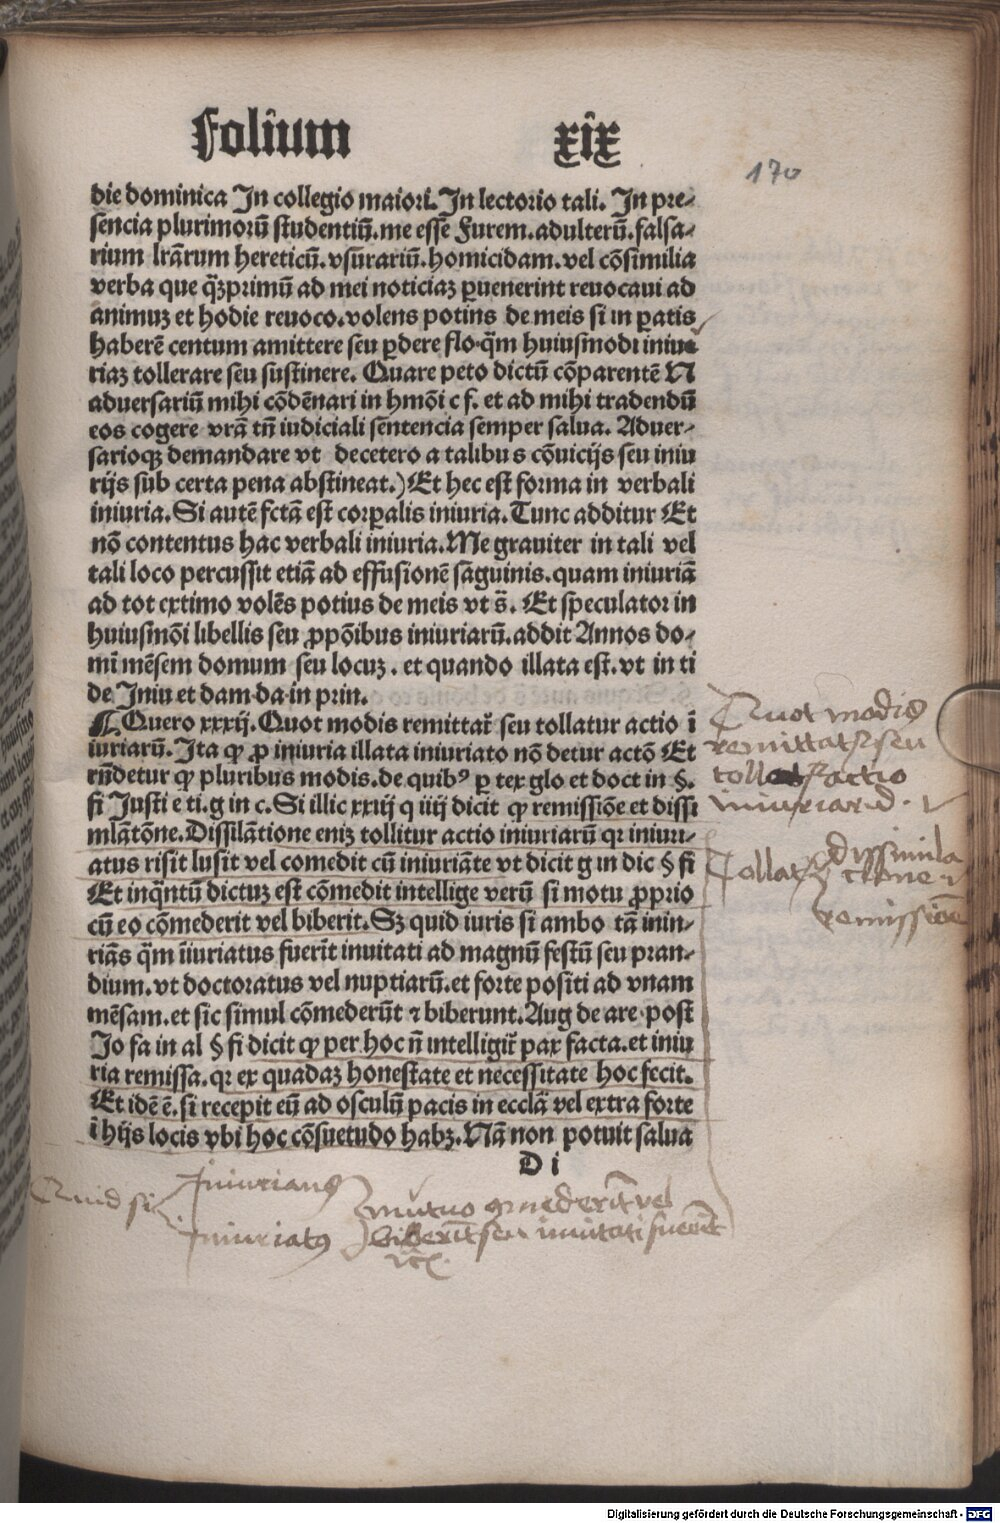 Folium xix
170
die dominica In collegio maiori. In lectorio tali. In pre⸗
sencia plurimorū studentiū. me esse Furem. adulterū. falsa⸗
rium lrārum hereticū. vsurariū. homicidam. vel cōsimilia
verba que q̄ꝫprimū ad mei noticiaꝫ ꝑuenerint reuocaui ad
animuꝫ et hodie reuoco. volens potins de meis si in ꝑatis
haberē centum amittere seu ꝑdere flo. q̄m huiusmodi iniu⸗
riaꝫ tollerare seu sustinere. Quare peto dictū cōparentē N
aduersariū mihi cōdēnari in hmōi c f. et ad mihi tradendū
eos cogere vrā tn̄ iudiciali sentencia semper salua. Aduer⸗
sarioqꝫ demandare vt decetero a talibus cōuicijs seu iniu
rijs sub certa pena abstineat.) Et hec est forma in verbali
iniuria. Si autē fctā est corꝑalis iniuria. Tunc additur Et
nō contentus hac verbali iniuria. Me grauiter in tali vel
tali loco percussit etiā ad effusionē sāguinis. quam iniuriā
ad tot extimo volēs potius de meis vt s̄. Et speculator in
huiusmōi libellis seu ꝓpōibus iniuriarū. addit Annos do⸗
mī mēsem domum seu locuꝫ. et quando illata est. vt in ti
de Iniu et dam da in prin.
¶ Quero xxxij. Quot modis remittat᷑ seu tollatur actio ī
iuriarū. Ita ꝙ ꝓ iniuria illata iniuriato nō detur actō Et
rn̄detur ꝙ pluribus modis. de quibꝰ ꝑ tex glo et doct in §.
fi Justi e ti. g in c. Si illic xxiij q iiij dicit ꝙ remissiōe et dissi
mlātōne. Dissilātione eniꝫ tollitur actio iniuriarū qr iniuri⸗
atus risit lusit vel comedit cū iniuriāte vt dicit g in dic § fi
Et inq̄ntū dictuꝫ est cōmedit intellige verū si motu ꝓprio
cū eo cōmederit vel biberit. Sꝫ quid iuris si ambo tā inin⸗
riās q̄m īiuriatus fuerīt inuitati ad magnū festū seu pran⸗
dium. vt doctoratus vel nuptiarū. et forte positi ad vnam
mēsam. et sic simul cōmederūt ⁊ biberunt. Aug de are post
Jo fa in al § fi dicit ꝙ per hoc n̄ intelligit᷑ pax facta. et iniu
ria remissa. qr ex quadaꝫ honestate et necessitate hoc fecit.
Et idē ē. si recepit eū ad osculū pacis in ecclā vel extra forte
ī hijs locis vbi hoc cōsuetudo habꝫ. Nā non potuit salua
D i
Quot modis
remittat᷑ seu
tollat᷑ actio
iniuriarū.
Tollat᷑ dissimila
cione
remissiōe
Quid si
Iniurians
Iniuriatꝰ
mutuo comederīt vel
biberīt seu inuitati fuerīt